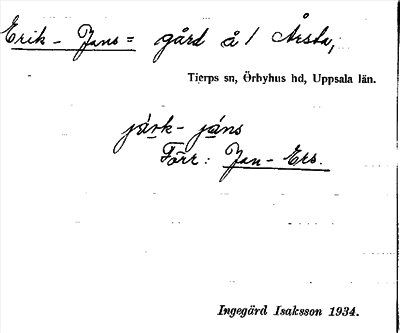 Erik-Jans= gård å 1 Årsta,
Tierps sn, Örbyhus hd, Uppsala län.
järk-jáns
Förr: Jan-Ers.
Ingegärd Isaksson 1934.